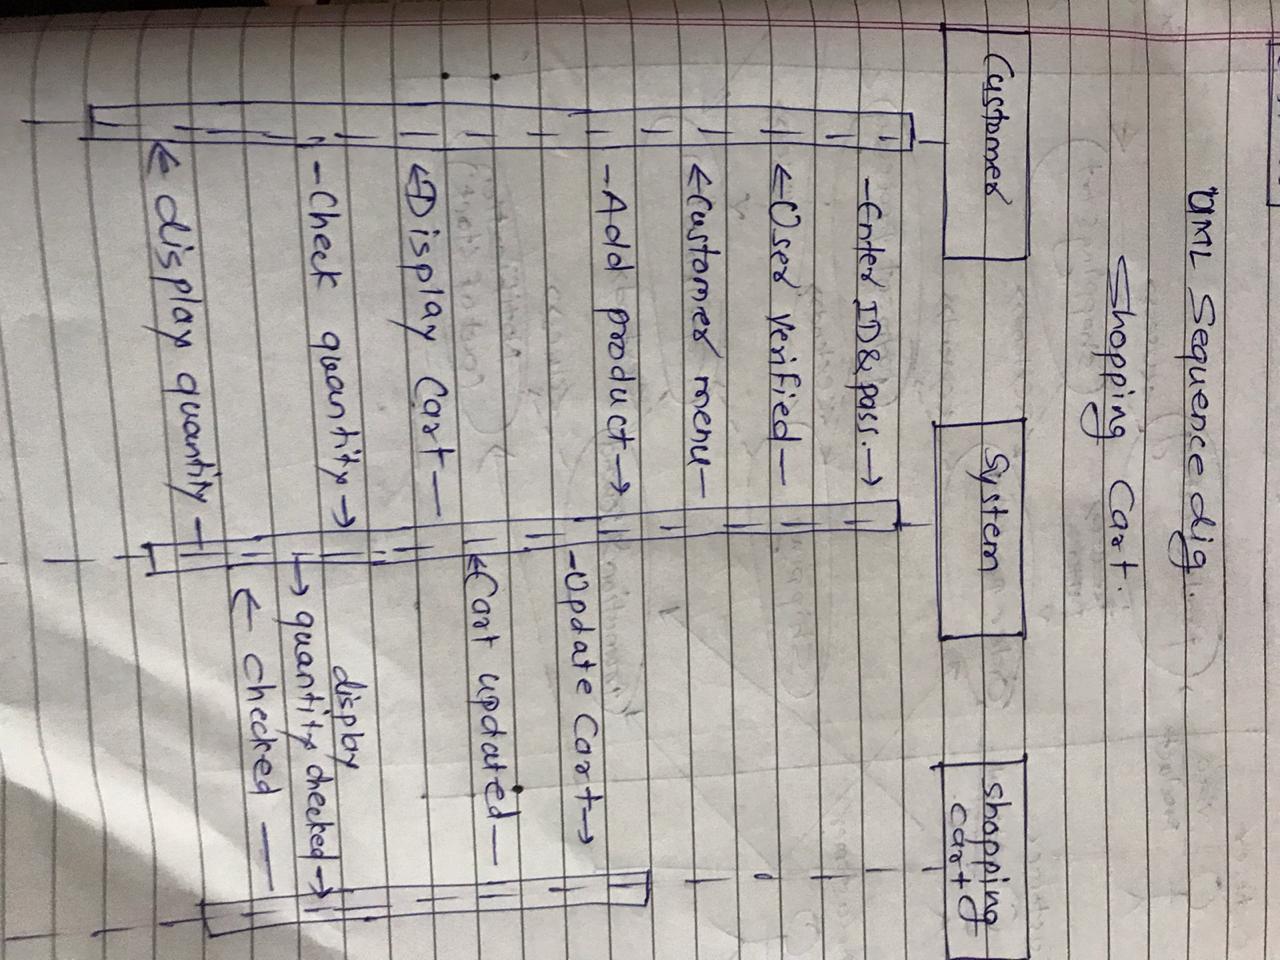 UML Sequence dig.
Shopping Cart.
Customer
System
Shopping
cart
-Enter ID & pass.→
←User verified—
←Customer menu—
-Add product→
-Update Cart→
←Cart updated—
←Display Cart—
-Check quantity→
display
→quantity checked→
← checked —
← display quantity —